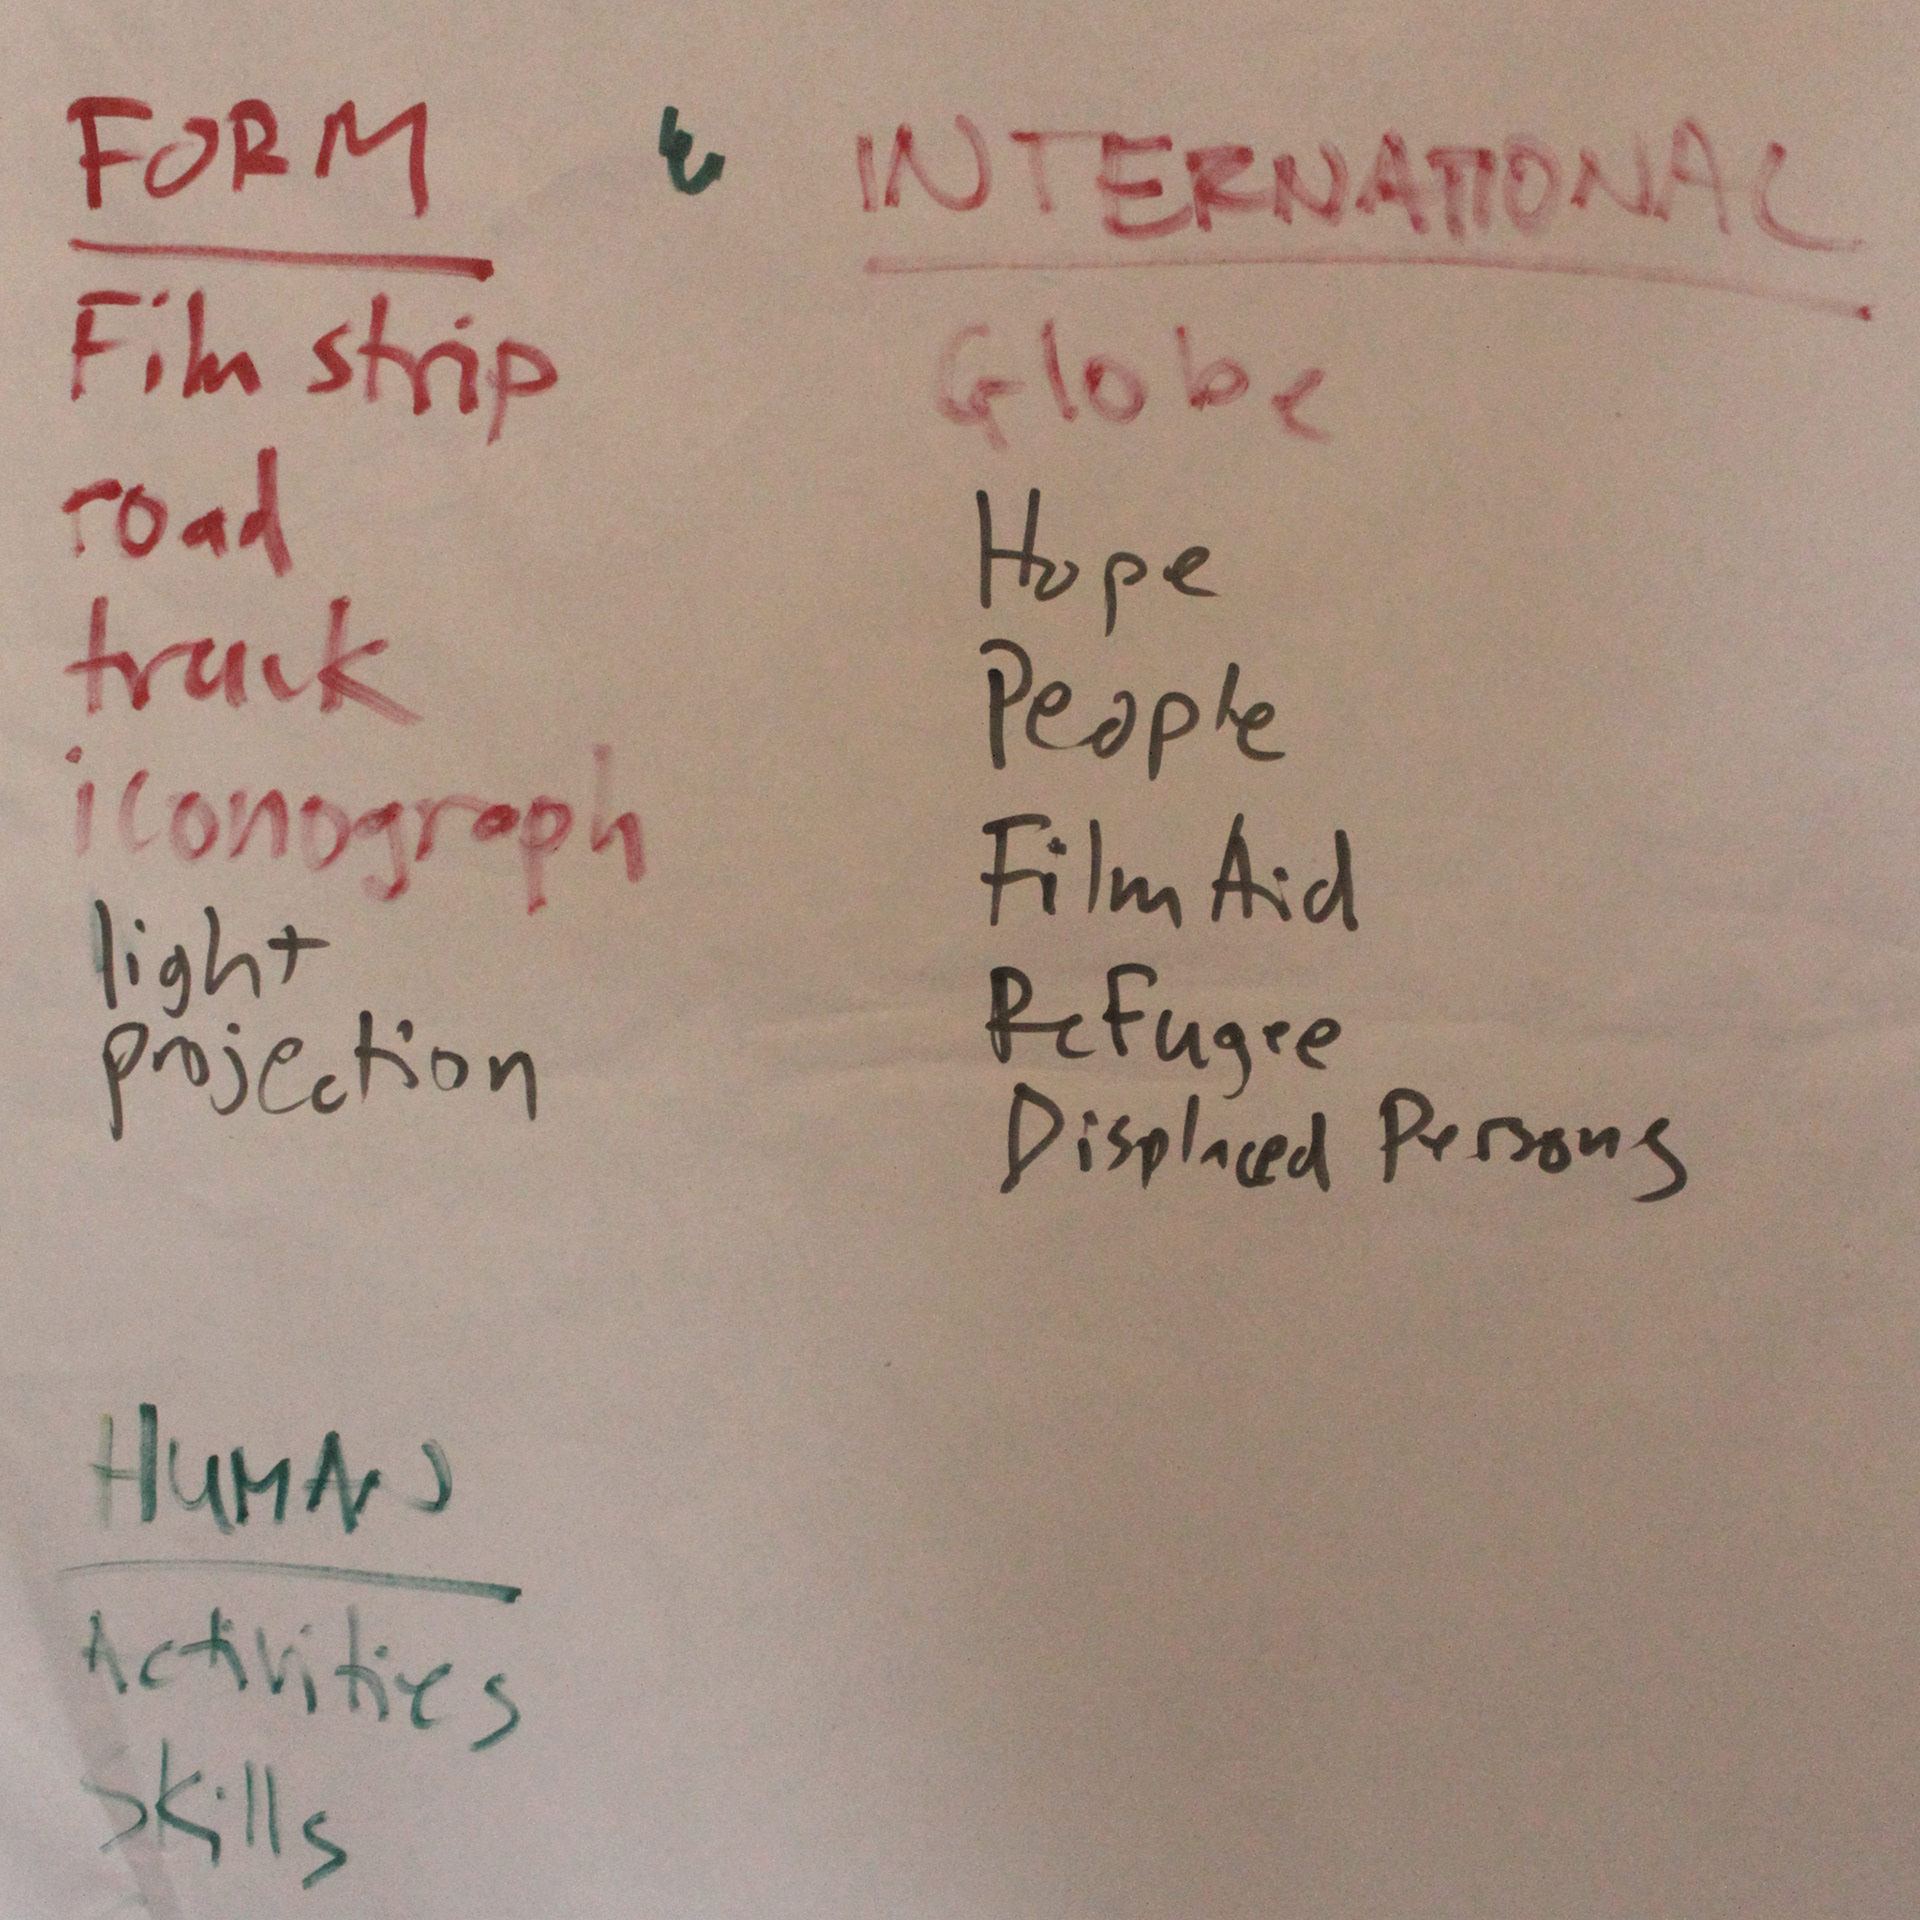 FORM
Film strip
road
track
iconograph
light
projection
INTERNATIONAL
Globe
Hope
People
Film Aid
Refugee
Displaced Persons
HUMAN
Activities
Skills